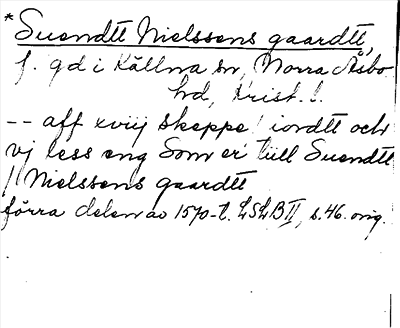 *Suendtt Nielssens gaardtt,
f. gd i Källna sn, Norra Åsbo
hd, Krist. l.
-- aff xviij skeppe/ iordtt och
vj less eng Som er till Suendtt
// Nielssens gaardtt
förra delen av 1570-t. LSLB II, s. 46. orig.